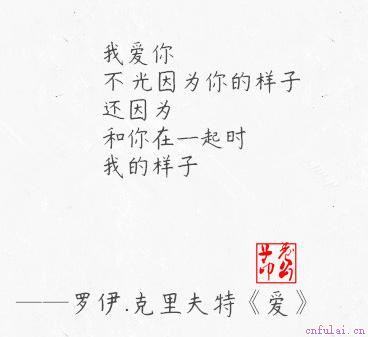 我爱你
不光因为你的样子
还因为
和你在一起时
我的样子
——罗伊.克里夫特《爱》
cnfulai.cn